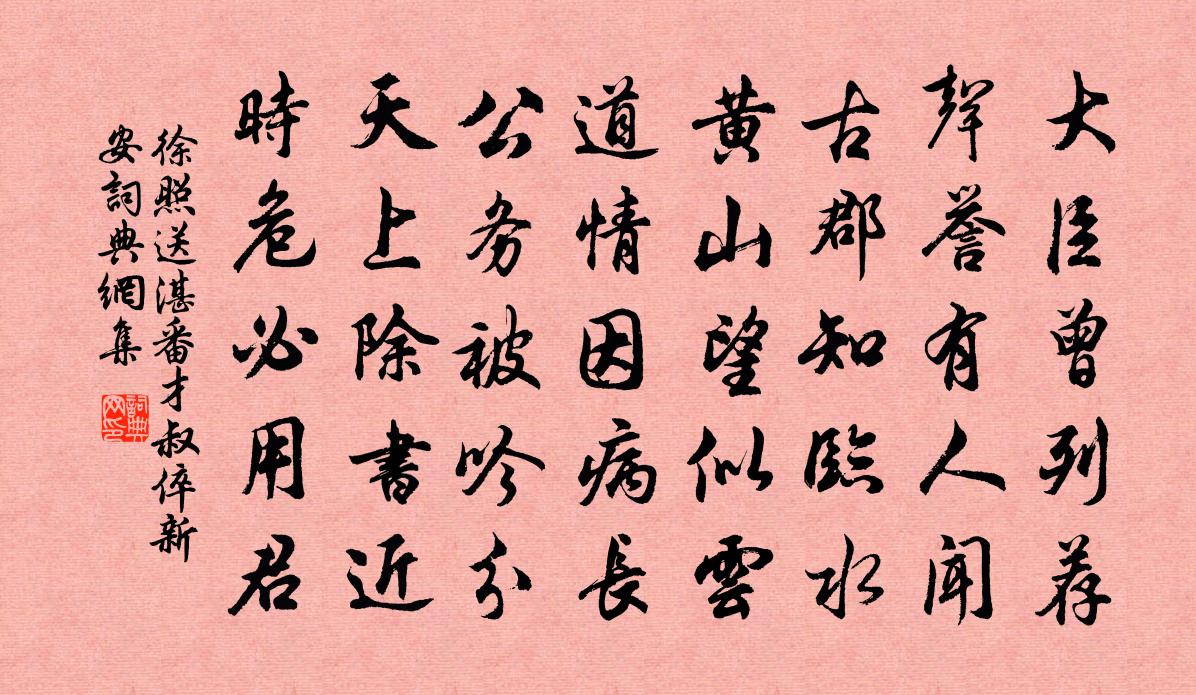 大臣曾列荐
聲誉有人聞
古郡知臨水
黄山望似雲
道情因病長
公务被吟分
天上除書近
時危必用君
徐照送湛番才叔倅新
安詞典網集
詞典
网印